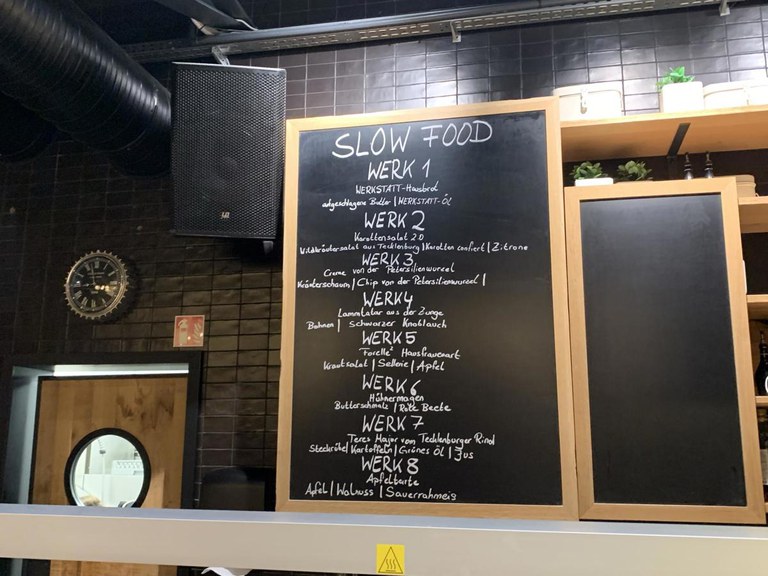 SLOW FOOD
WERK 1
WERKSTATT-Hausbrot
aufgeschlagene Butter | WERKSTATT-ÖL
WERK 2
Karottensalat 2.0
Wildkräutersalat aus Tecklenburg | Karotten confiert | Zitrone
WERK 3
Creme von der Petersilienwurzel
Kräuterschaum | Chip von der Petersilienwurzel |
WERK 4
Lammtatar aus der Zunge
Bohnen | Schwarzer Knoblauch
WERK 5
Forelle Hausfrauenart
Krautsalat | Sellerie | Apfel
WERK 6
Hühnermagen
Butterschmalz | Rote Beete
WERK 7
Teres Major vom Tecklenburger Rind
Steckrübe | Kartoffeln | Grünes Öl | Jus
WERK 8
Apfeltarte
Apfel | Walnuss | Sauerrahmeis